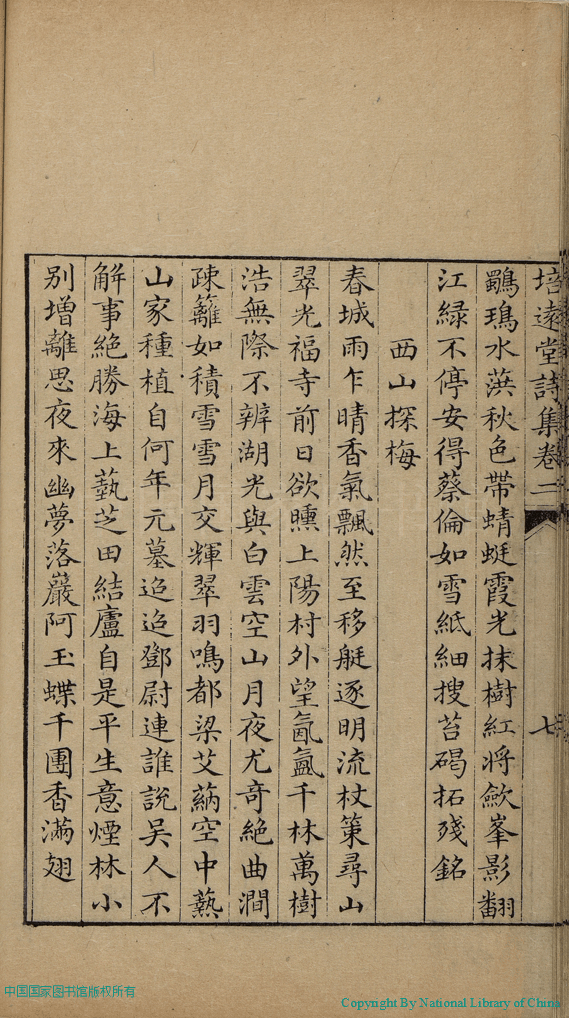 培遠堂詩集卷二
七
鸘鳿水濙秋色帶蜻蜓霞光抹樹紅將歛峯影翻
江緑不停安得蔡倫如雪紙細搜苔碣拓殘銘
西山探梅
春城雨乍晴香氣飄然至移艇逐明流杖策尋山
翠光福寺前日欲曛上陽村外望氤氳千林萬樹
浩無際不辨湖光與白雲空山月夜尤奇絶曲澗
疎籬如積雪雪月交輝翠羽鳴都梁艾蒳空中爇
山家種植自何年元墓迢迢鄧尉連誰說吴人不
解事絶勝海上藝芝田結廬自是平生意煙林小
别增離思夜來幽夢落巖阿玉蝶千團香滿翅
中国国家图书馆版权所有
Copyright By National Library of China